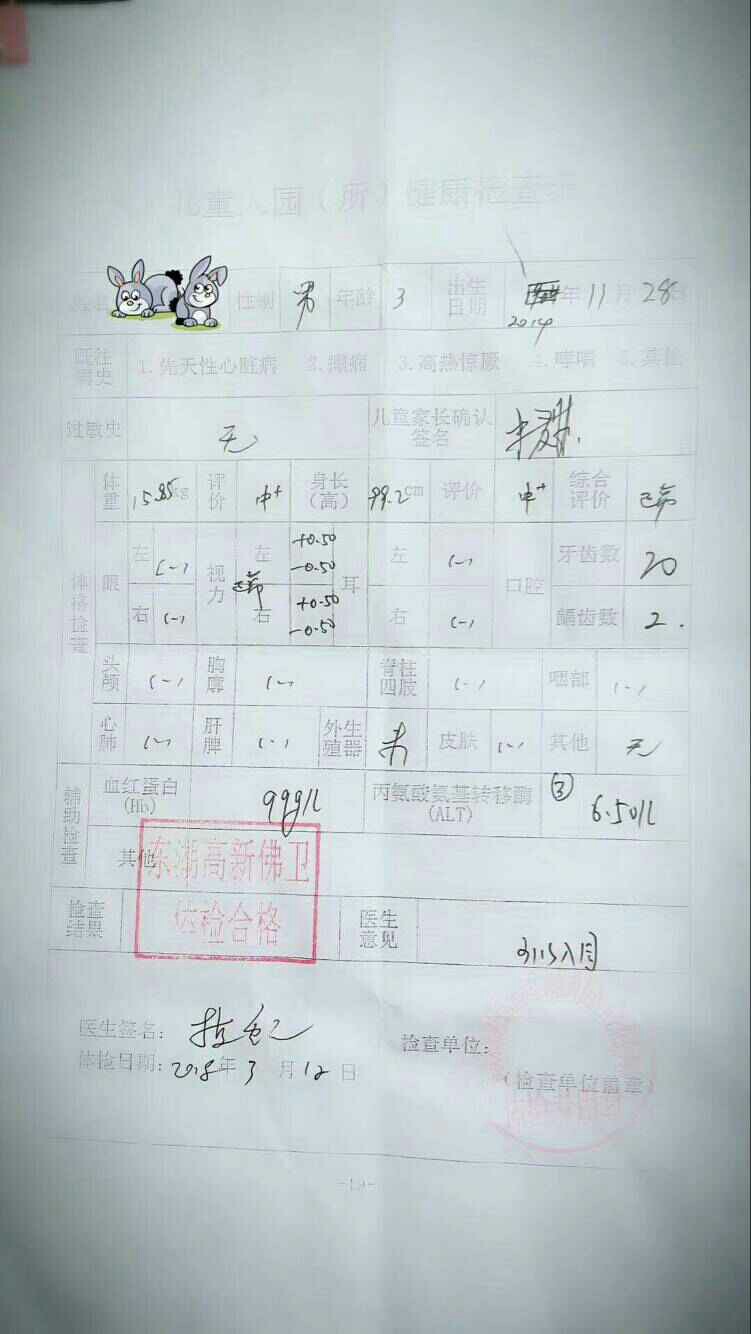 儿童入园（所）健康检查表
性别 男 年龄 3 出生日期 2014 年 11 月 28 日
既往病史 1.先天性心脏病 2.癫痫 3.高热惊厥 4.哮喘 5.其他
过敏史 无 儿童家长确认签名
体重 15.85 kg 评价 中+ 身长（高） 99.2 cm 评价 中+ 综合评价
体格检查 眼 左 (-) 视力 左 +0.50 -0.50 耳 左 (-) 口腔 牙齿数 20
右 (-) 右 +0.50 -0.50 右 (-) 龋齿数 2.
头颅 (-) 胸廓 (-) 脊柱四肢 (-) 咽部 (-)
心肺 (-) 肝脾 (-) 外生殖器 未 皮肤 (-) 其他 无
辅助检查 血红蛋白(Hb) 99g/L 丙氨酸氨基转移酶(ALT) ③ 6.50/L
其他
东湖高新佛卫
体检合格
检查结果 医生意见
医生签名： 检查单位：
体检日期： 2018 年 3 月 12 日 （检查单位盖章）